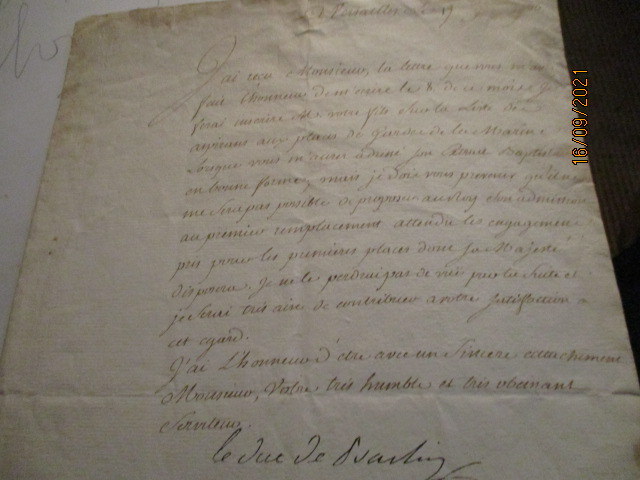 à Versailles le 19
J'ai reçu Monsieur, la lettre que vous m'avez
fait l'honneur de m'écrire le 8 de ce mois. Je
ferai inscrire M. votre fils sur la Liste des
aspirans aux places de Gardes de la Marine
Lorsque vous m'aurez adressé son Extrait Baptistaire
en bonne forme; mais je dois vous prevenir qu'il ne
me sera pas possible de proposer au Roy son admission
au premier remplacement attendu les engagemens
pris pour les premières places dont Sa Majesté
disposera, je ne le perdrai pas de vüe pour la suite et
je serai très aise de contribuer à votre satisfaction à
cet égard.
J'ai L'honneur d'être avec un Sincere attachement
Monsieur, Votre très humble et très obéissant
Serviteur.
le duc de
16/09/2021